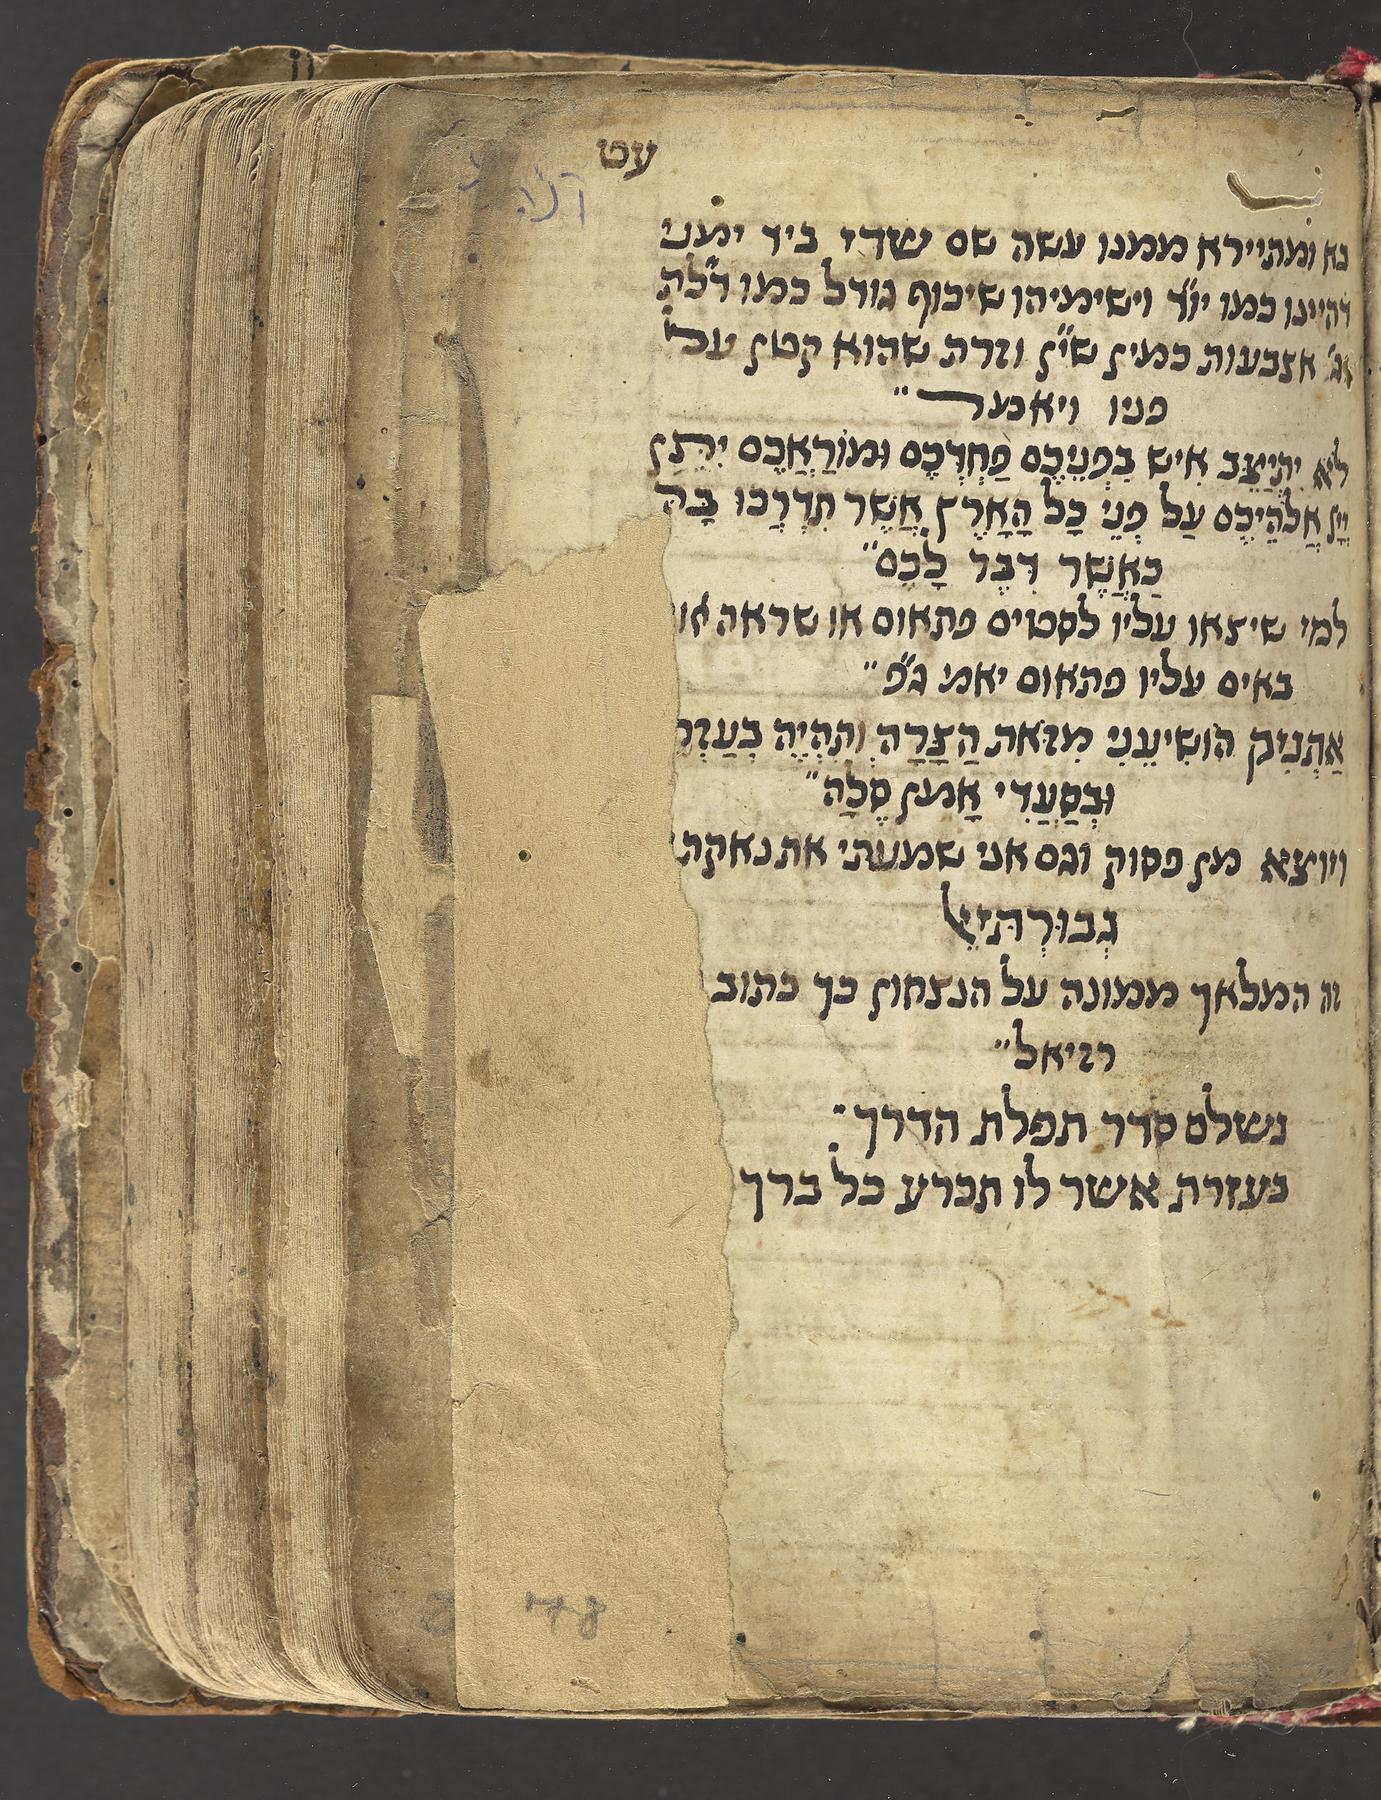 עט
בא ומתיירא ממנו עשה שם שדי ביד ימני
דהיינו כמו יו״ד וישימיהו שיכוף גודל כמו ד״לת
וג׳ אצבעות כמין שי״ן וזרת שהוא קטן על
פניו ויאמר״
לֹא יִתְיַצֵּב אִישׁ בִּפְנֵיכֶם פַּחְדְּכֶם וּמוֹרַאֲכֶם יִתֵּן
יְיָ אֱלֹהֵיכֶם עַל פְּנֵי כָל הָאָרֶץ אֲשֶׁר תִּדְרְכוּ בָהּ
כַּאֲשֶׁר דִּבֶּר לָכֶם״
למי שיצאו עליו לסטים פתאום או שראה
באים עליו פתאום יאמ׳ ג״פ״
אַתְנִיק הוֹשִׁיעֵנִי מִזֹּאת הַצָּרָה וְתִהְיֶה בְּעֶזְרִ
וּבְסַעֲדִי אָמֵן סֶלָה״
ויוצא מן פסוק וגם אני שמעתי את נאקת
גְבוּרְתִּיאֵל
זה המלאך ממונה על הנצחון כך כתוב
רזיאל״
נשלם סדר תפלת הדרך
בעזרת אשר לו תכרע כל ברך
78